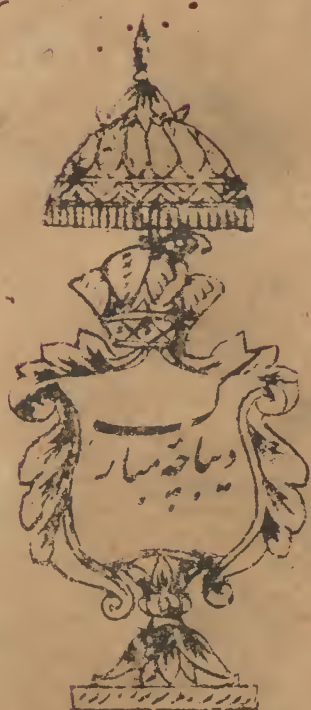 دیباچۂ مبارک